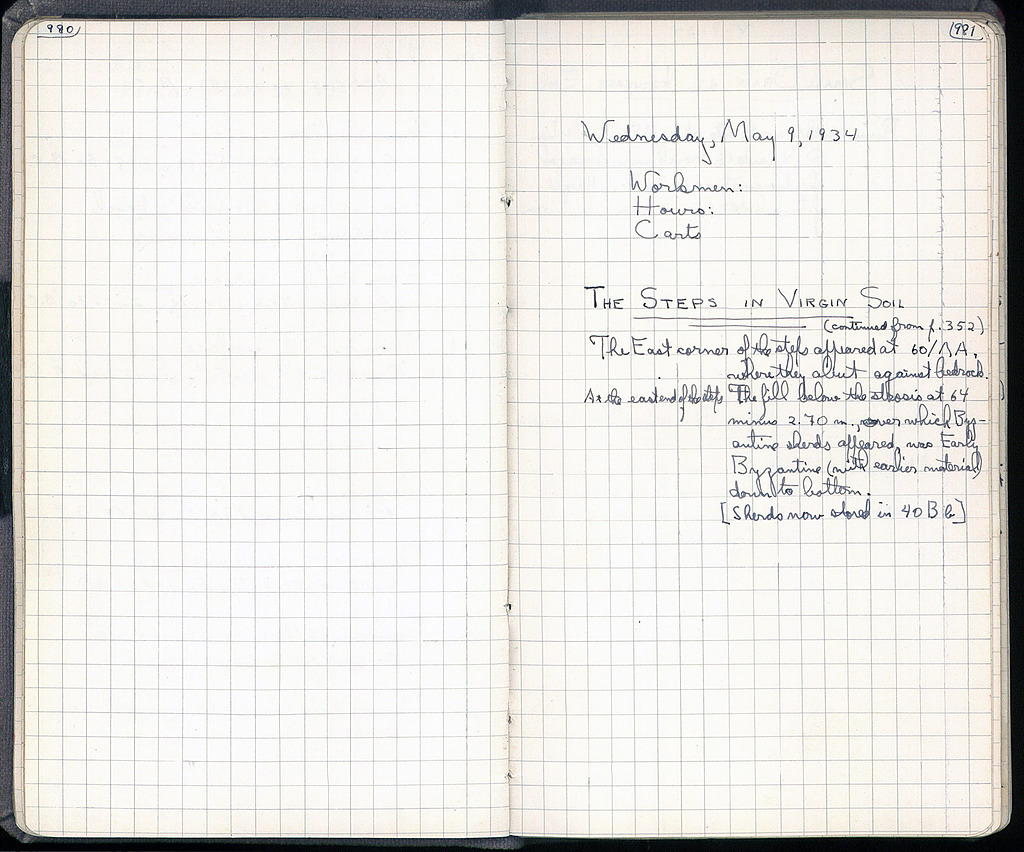 980
981
Wednesday, May 9, 1934
Workmen:
Hours:
Carts
THE STEPS IN VIRGIN SOIL
(continued from p. 352)
The East corner of the steps appeared at 60/ΛΑ,
where they abut against bedrock.
At the east end of the steps The fill below the strosis at 64
minus 2.70 m., over which Byz-
antine sherds appeared, was Early
Byzantine (with earlier material)
down to bottom.
[Sherds now stored in 40 B b]